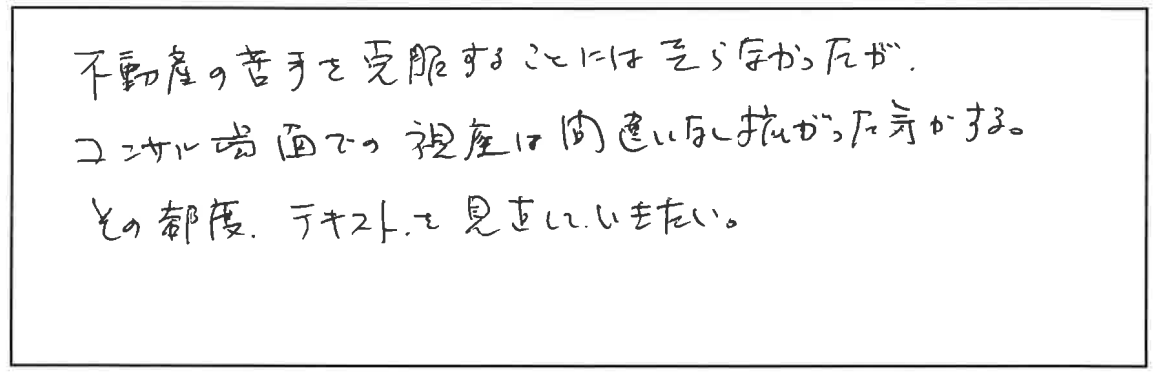 不動産の苦手を克服することには至らなかったが、
コンサル場面での視座は間違いなく拡がった気がする。
その都度、テキストを見直していきたい。